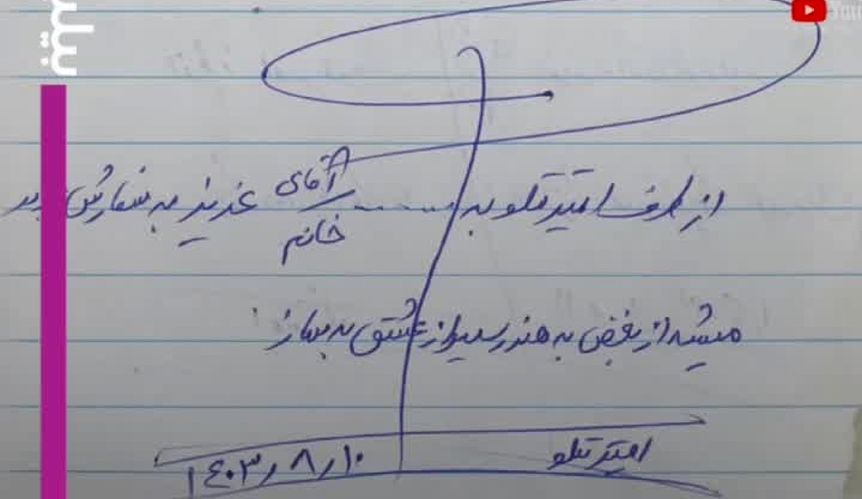 از طرف امیر تتلو به ........ آقای/خانم عزیز به سفارش
میشه از بغض به هنر رسید از عشق به نماز
امیر تتلو
۱۴۰۳/۸/۱۰